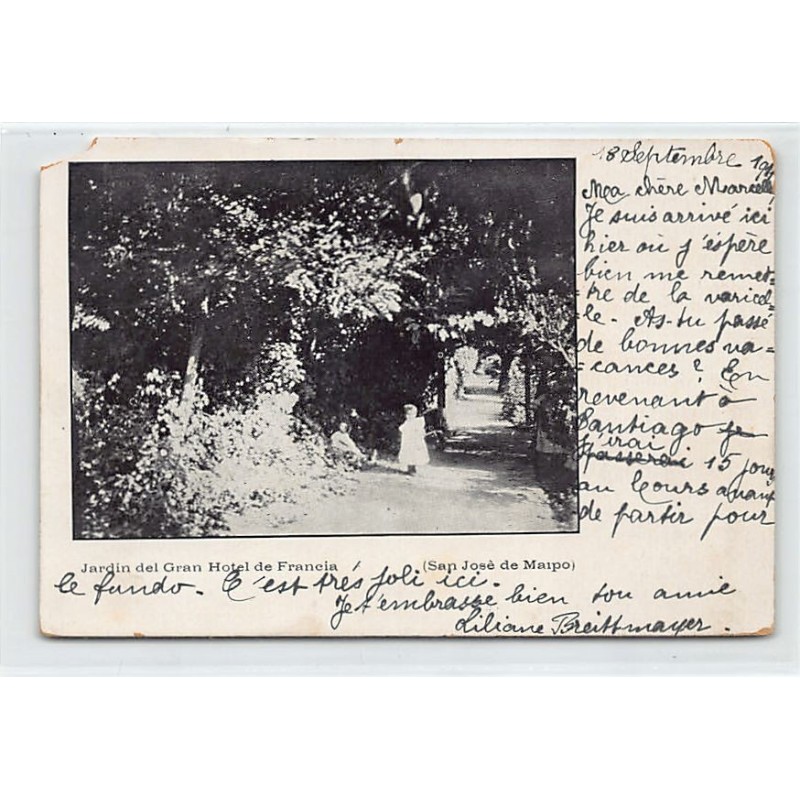 18 Septembre 19
Ma chère Marcelle
Je suis arrivé ici
hier où j'éspère
bien me remet=
=tre de la varicel=
=le. As-tu passé
de bonnes va=
=cances? En
revenant à
Santiago je
j'irai
passerai 15 jours
au Cours avant
de partir pour
Jardin del Gran Hotel de Francia (San Josè de Maipo)
le fundo. C'est trés joli ici.
Je t'embrasse bien ton amie
Liliane Breittmayer.